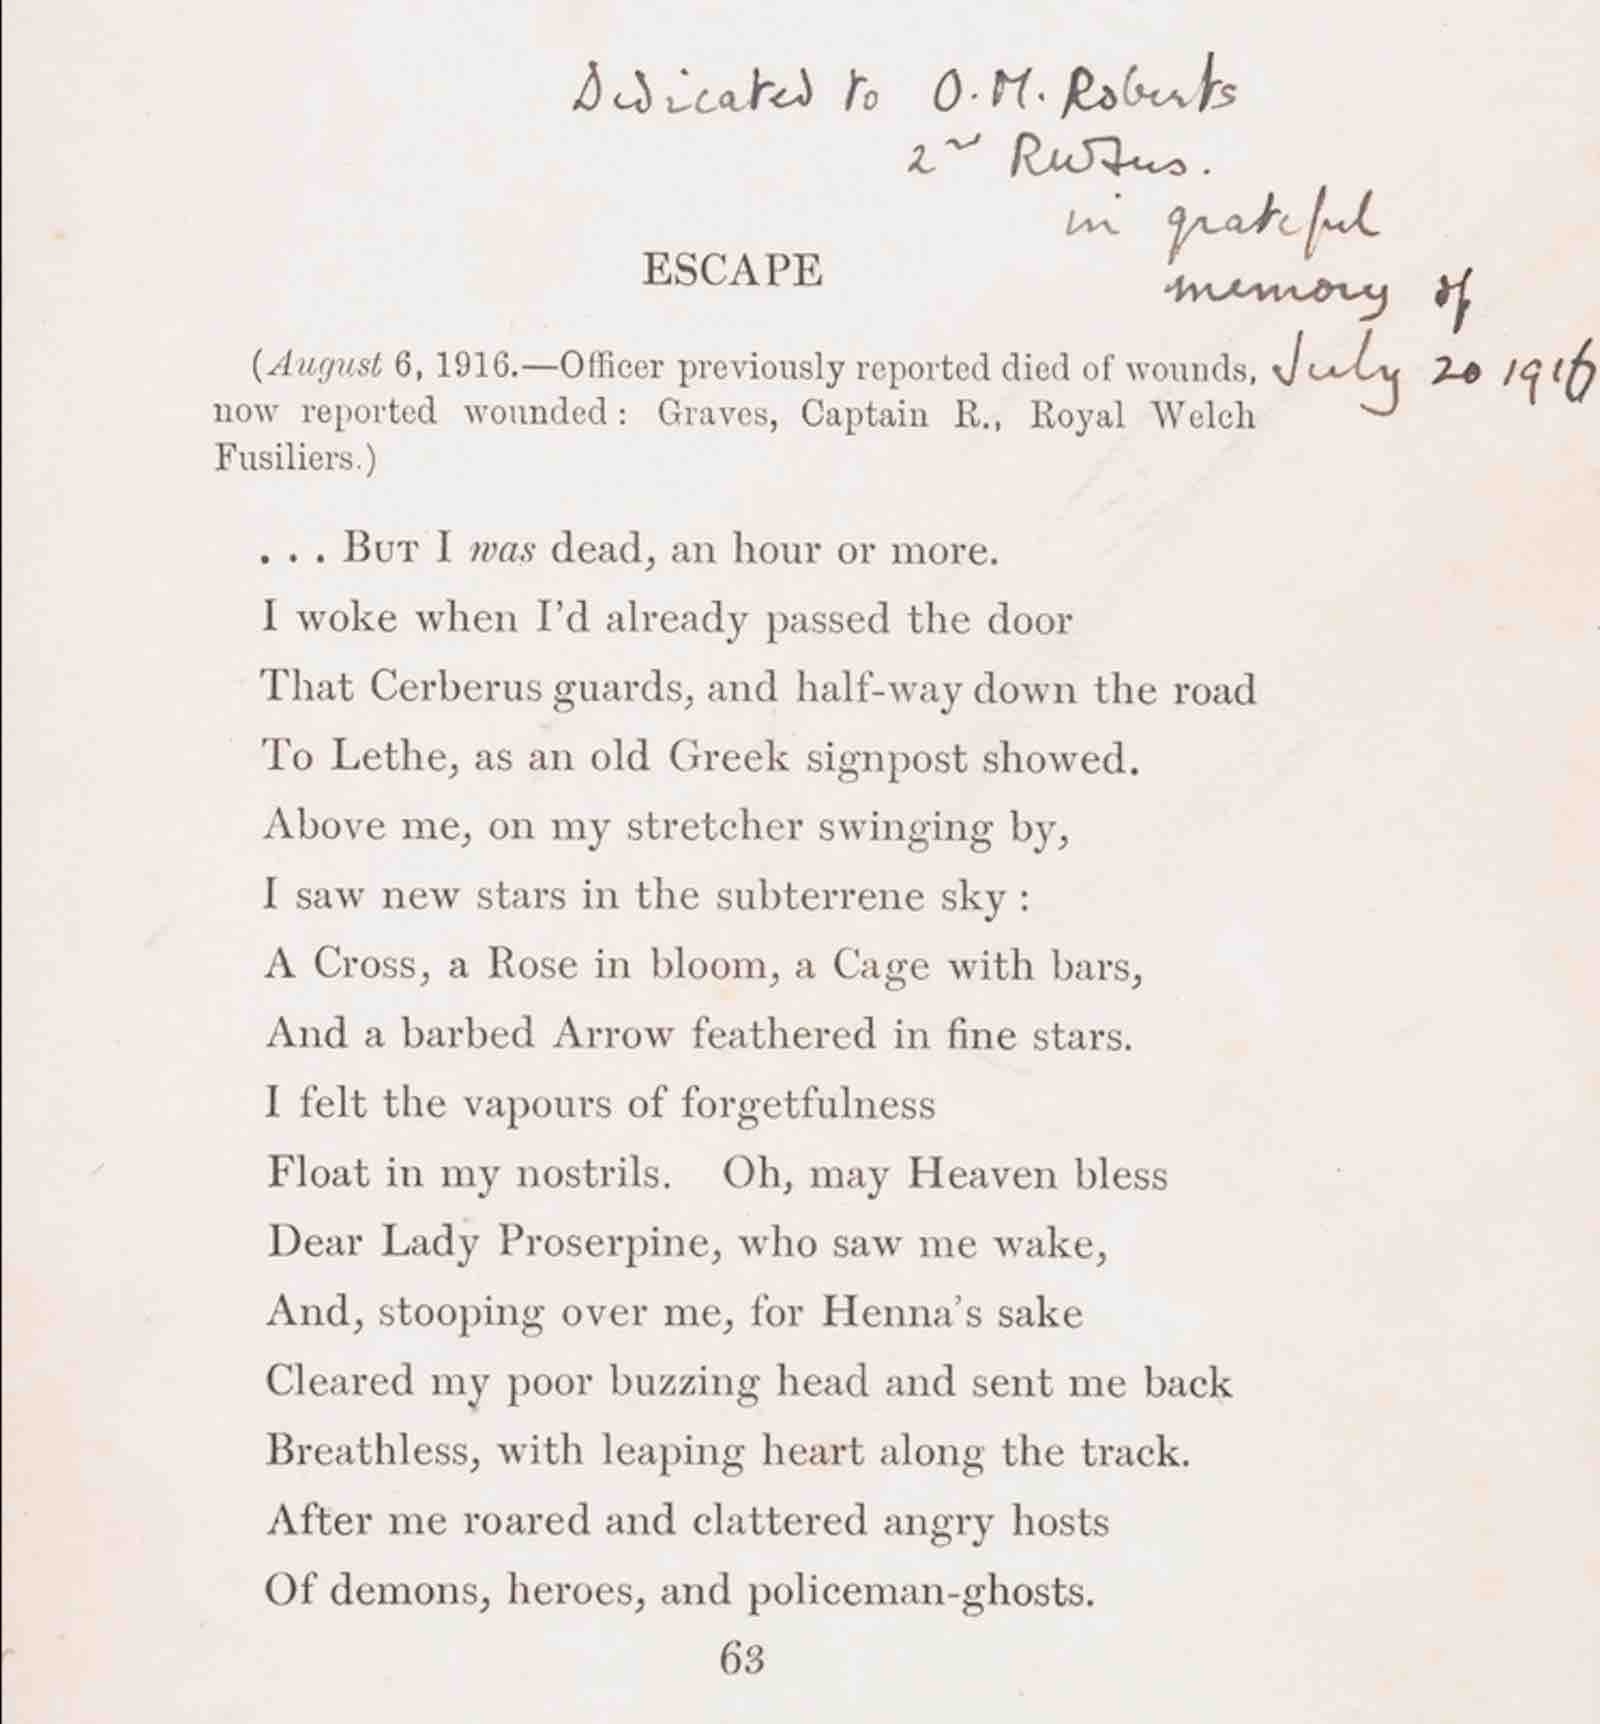 Dedicated to O. M. Roberts
2nd RWFus.
in grateful
memory of
July 20 1916
ESCAPE
(August 6, 1916.—Officer previously reported died of wounds,
now reported wounded : Graves, Captain R., Royal Welch
Fusiliers.)
. . . BUT I was dead, an hour or more.
I woke when I’d already passed the door
That Cerberus guards, and half-way down the road
To Lethe, as an old Greek signpost showed.
Above me, on my stretcher swinging by,
I saw new stars in the subterrene sky :
A Cross, a Rose in bloom, a Cage with bars,
And a barbed Arrow feathered in fine stars.
I felt the vapours of forgetfulness
Float in my nostrils. Oh, may Heaven bless
Dear Lady Proserpine, who saw me wake,
And, stooping over me, for Henna’s sake
Cleared my poor buzzing head and sent me back
Breathless, with leaping heart along the track.
After me roared and clattered angry hosts
Of demons, heroes, and policeman-ghosts.
63